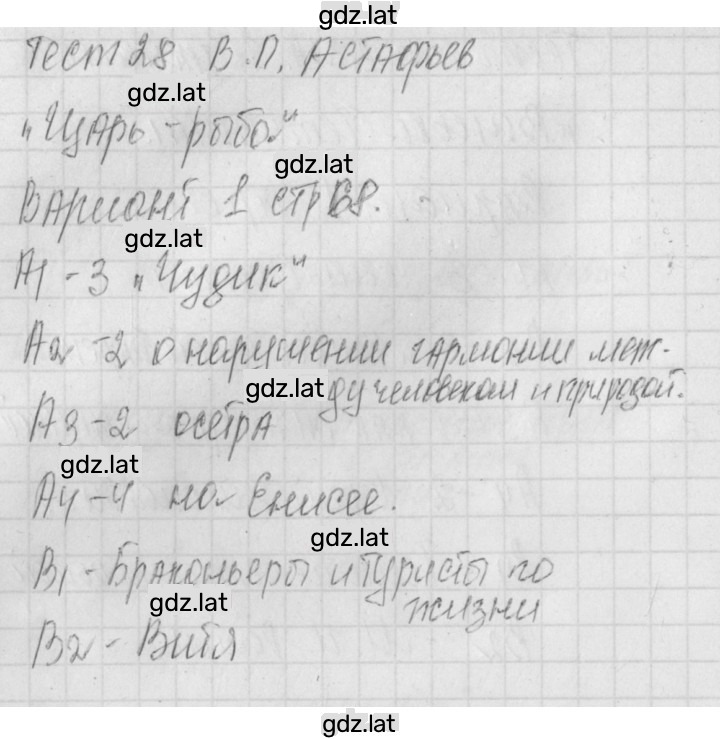 gdz.lat
Тест 28 В.П. Астафьев
gdz.lat
„Царь-рыба"
gdz.lat
Вариант 1 стр 68.
gdz.lat
А1 - 3 „Чудик"
А2 - 2 о нарушении гармонии меж-
gdz.lat ду человеком и природой.
А3 - 2 осётра
gdz.lat
А4 - 4 на Енисее.
gdz.lat
В1 - Браконьеры и туристы по
gdz.lat жизни
В2 - Витя
gdz.lat